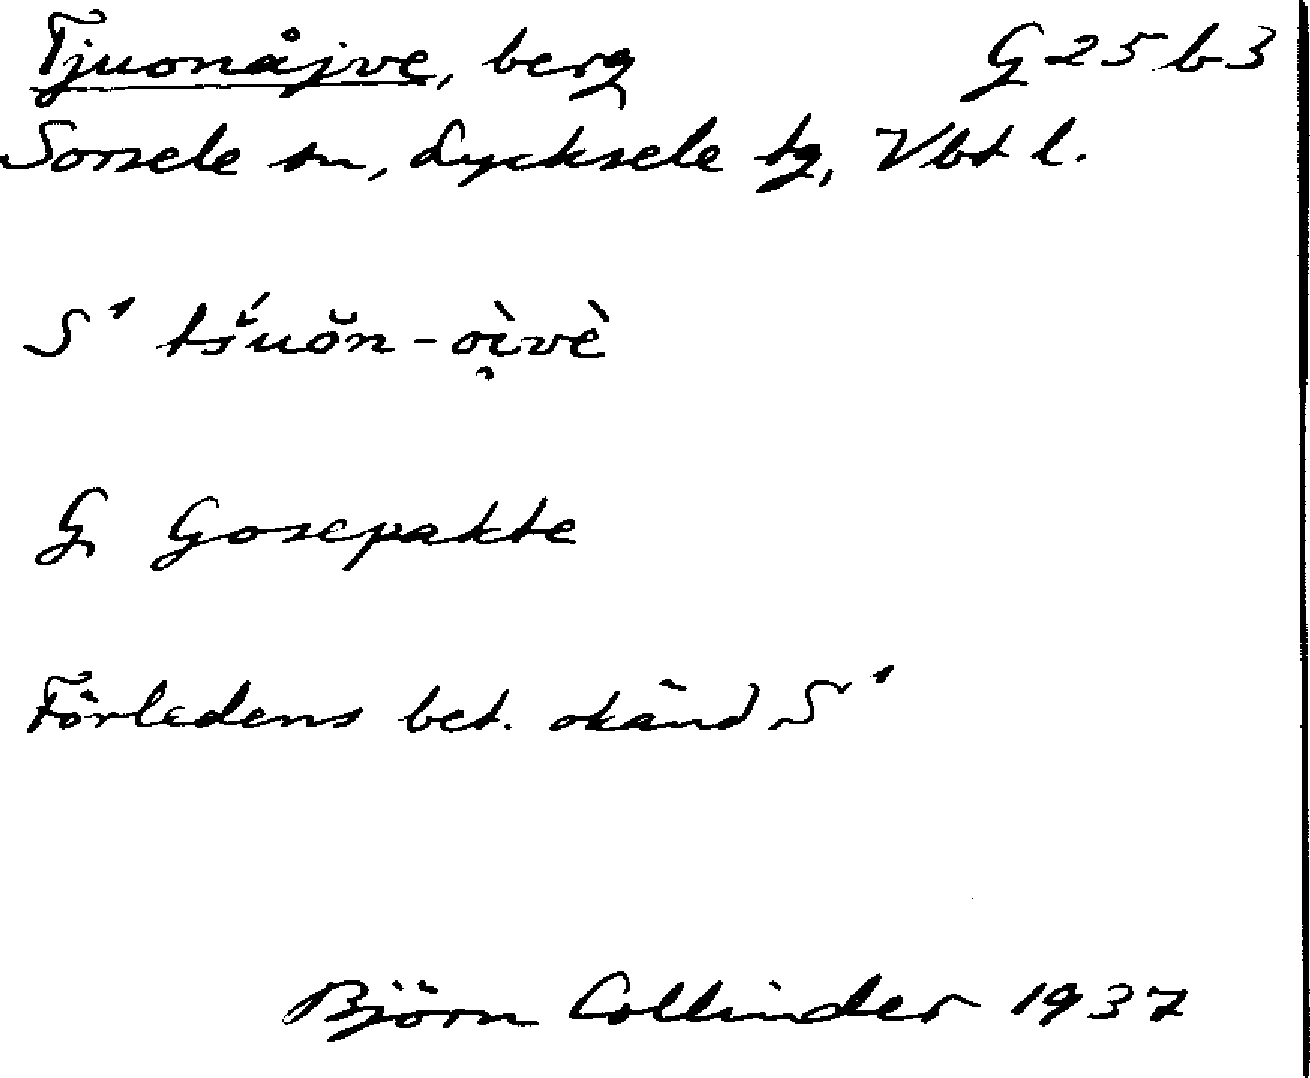 Tjuonåjve, berg G 25 b 3
Sorsele sn, Lycksele tg, Vbt l.
S¹ tš́uŏn-o̯ì̯vè
G Gosepakte
Förledens bet. okänd S¹
Björn Collinder 1937